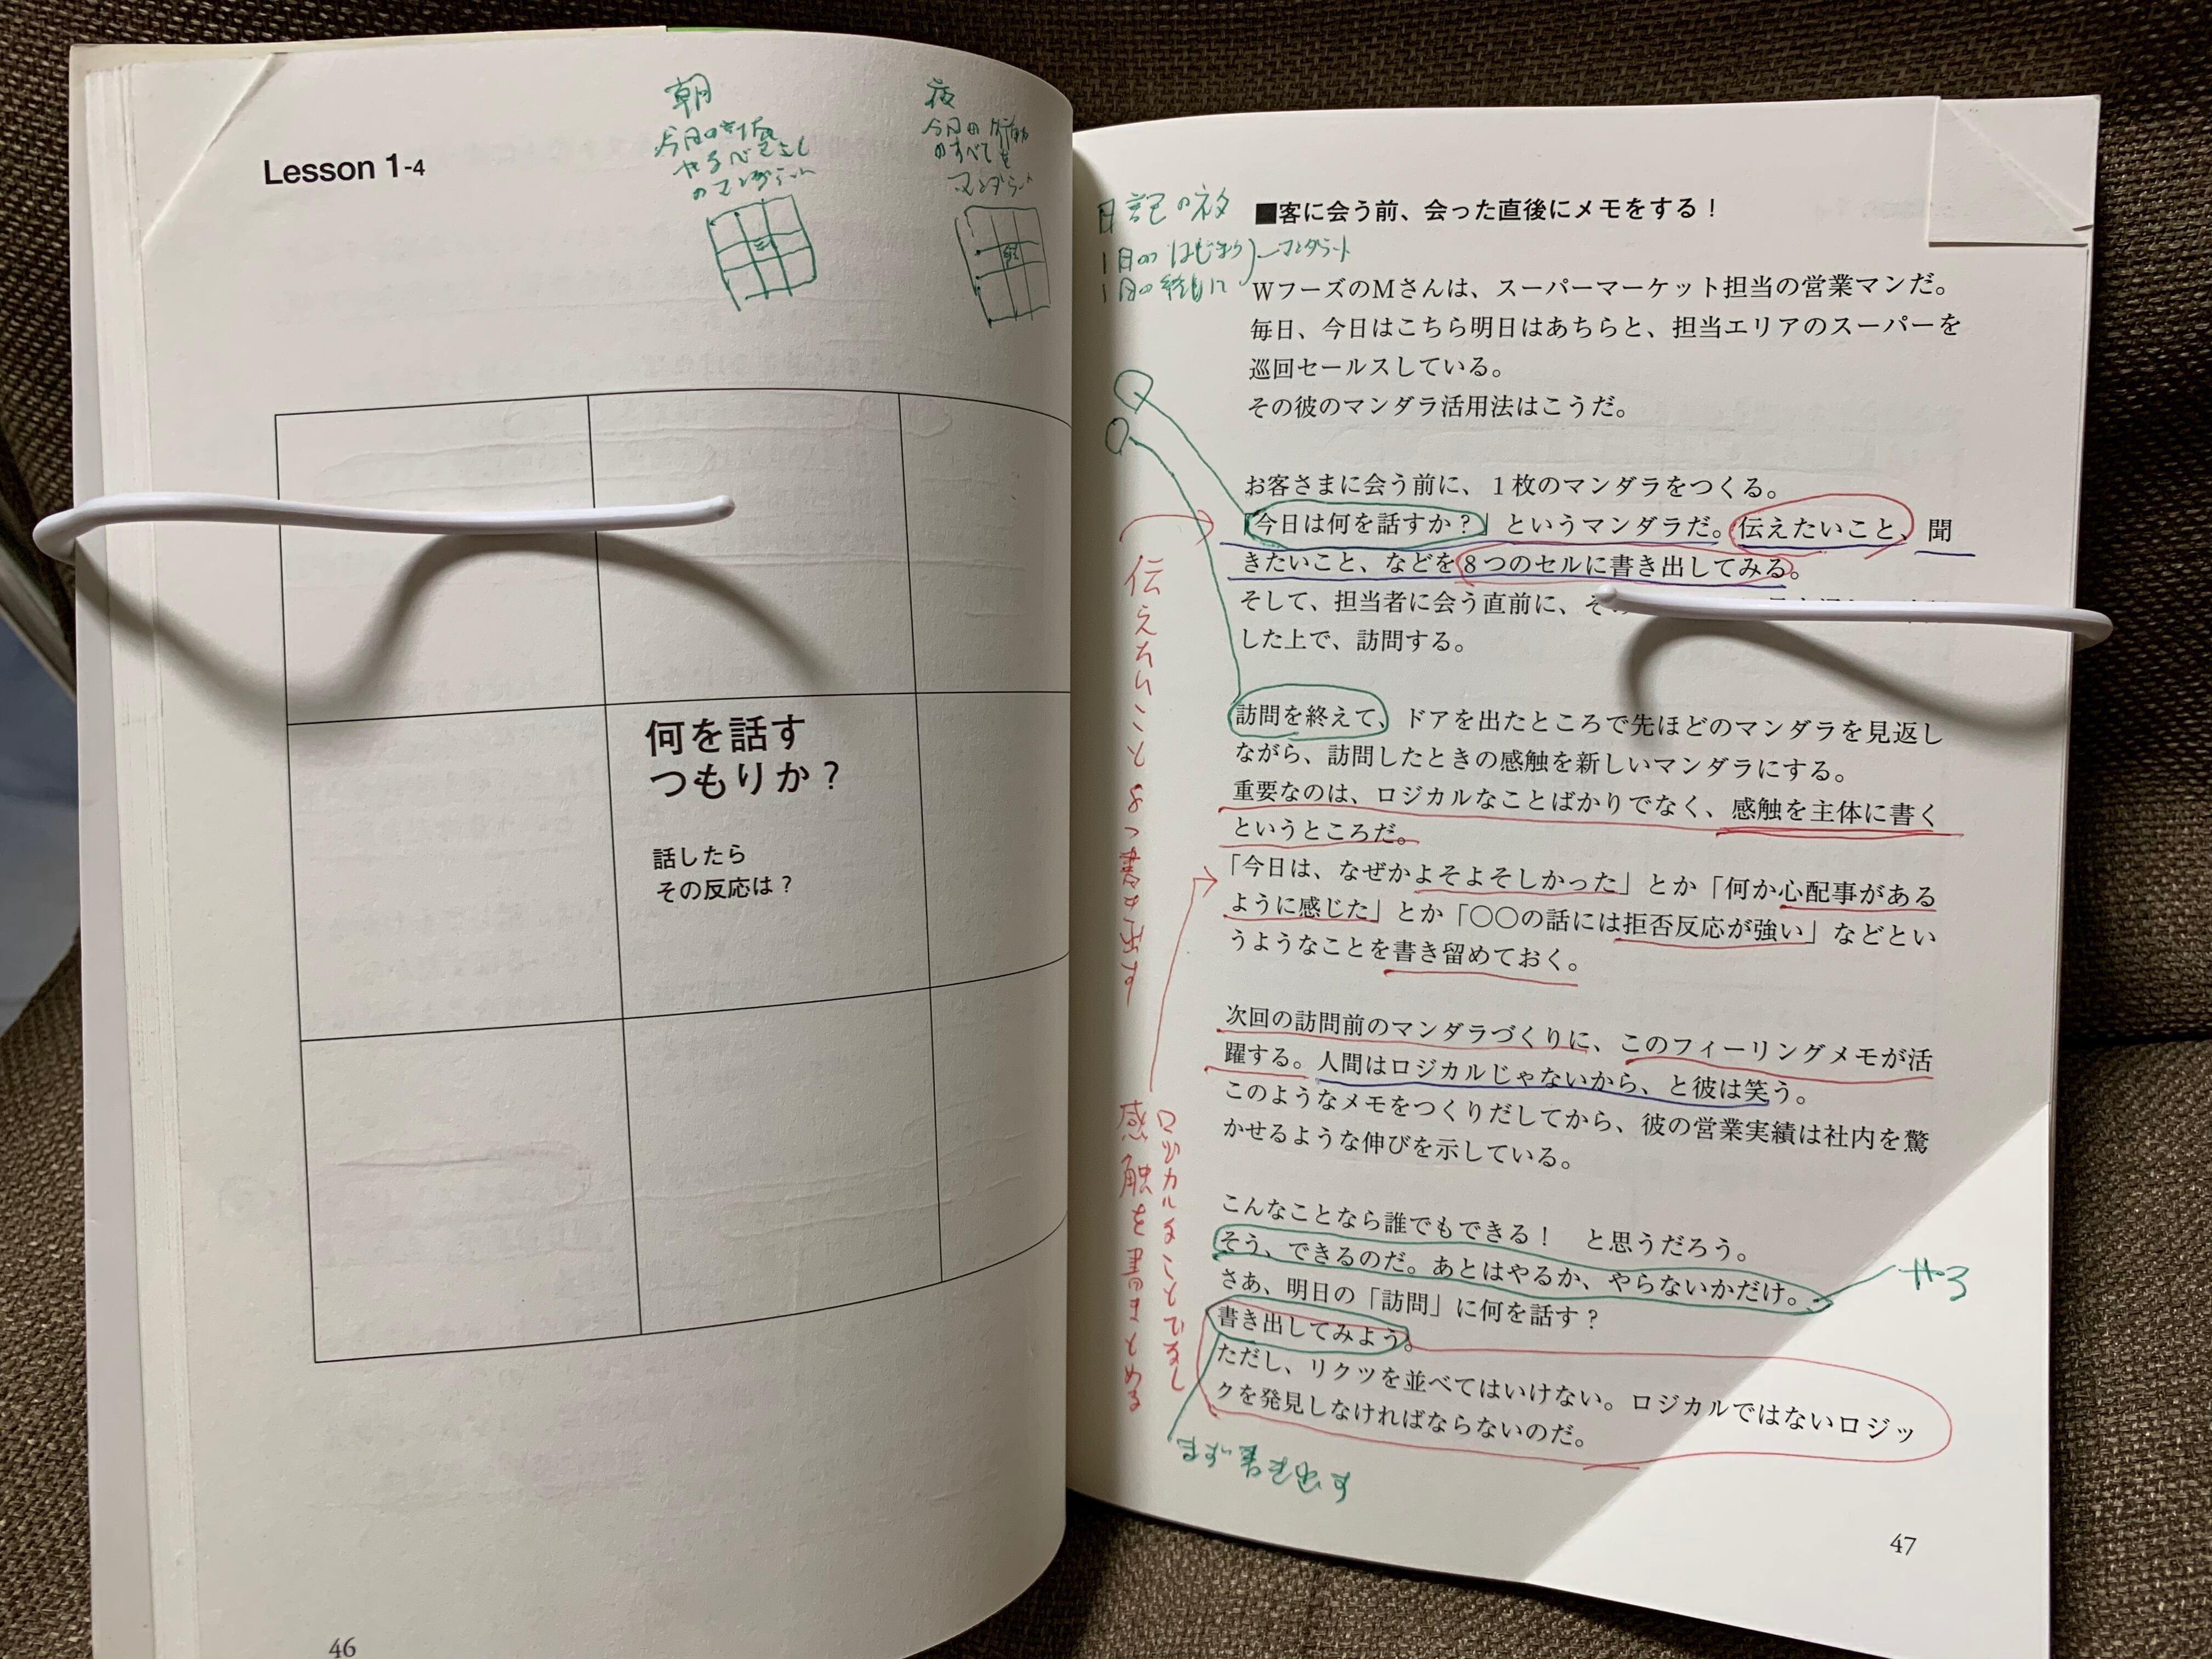 Lesson 1-4
朝
夜
何を話す
つもりか？
話したら
その反応は？
46
日記のネタ
1日のはじまり
マンダラート
■客に会う前、会った直後にメモをする！
WフーズのMさんは、スーパーマーケット担当の営業マンだ。
毎日、今日はこちら明日はあちらと、担当エリアのスーパーを
巡回セールスしている。
その彼のマンダラ活用法はこうだ。
お客さまに会う前に、1枚のマンダラをつくる。
「今日は何を話すか？」というマンダラだ。伝えたいこと、聞
きたいこと、などを8つのセルに書き出してみる。
そして、担当者に会う直前に、
した上で、訪問する。
訪問を終えて、ドアを出たところで先ほどのマンダラを見返し
ながら、訪問したときの感触を新しいマンダラにする。
重要なのは、ロジカルなことばかりでなく、感触を主体に書く
というところだ。
「今日は、なぜかよそよそしかった」とか「何か心配事がある
ように感じた」とか「○○の話には拒否反応が強い」などとい
うようなことを書き留めておく。
次回の訪問前のマンダラづくりに、このフィーリングメモが活
躍する。人間はロジカルじゃないから、と彼は笑う。
このようなメモをつくりだしてから、彼の営業実績は社内を驚
かせるような伸びを示している。
こんなことなら誰でもできる！　と思うだろう。
そう、できるのだ。あとはやるか、やらないかだけ。
さあ、明日の「訪問」に何を話す？
書き出してみよう。
ただし、リクツを並べてはいけない。ロジカルではないロジッ
クを発見しなければならないのだ。
伝えたいことを8つ書き出す
ロジカルなことでなく
感触を書きまとめる
やろ
まず書き出す
47